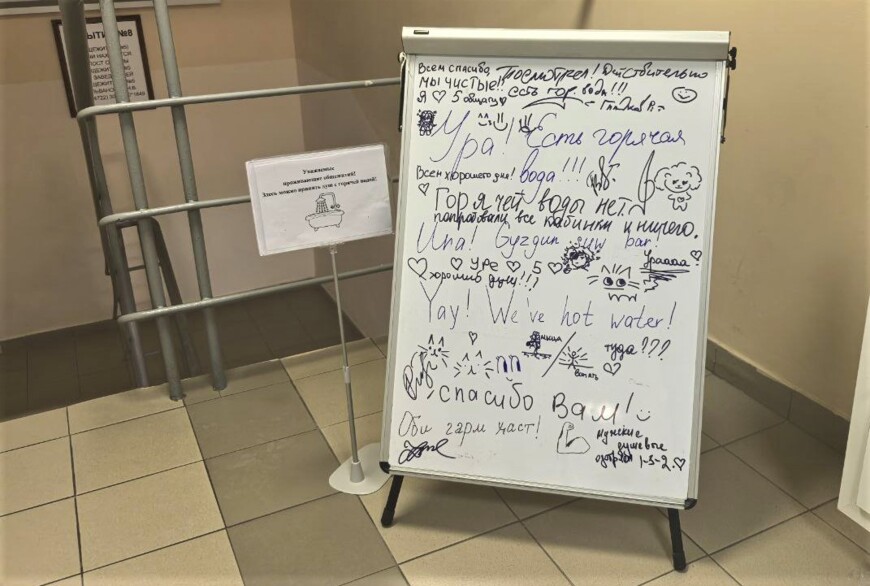 Уважаемые
проживающие общежитий!
Здесь можно принять душ с горячей водой!
Всем спасибо,
Мы чистые!!
Я ♡ 5 общагу
Посмотрел! Действительно
есть гор. вода!!!
Ура! Есть горячая
вода!!!
Всем хорошего дня!
Горячей воды нет.
попробовали все кабинки и ничего.
Ura! Gyzgyn suw bar!
♡ УРЕ ♡ 5 ♡
хороший душ!!!
Ураааа?
Yay! We've hot water!
туда???
мыша
вонять
спасибо Вам!
Оби гарм хаст!
мужские
душевые
1-3-2.♡